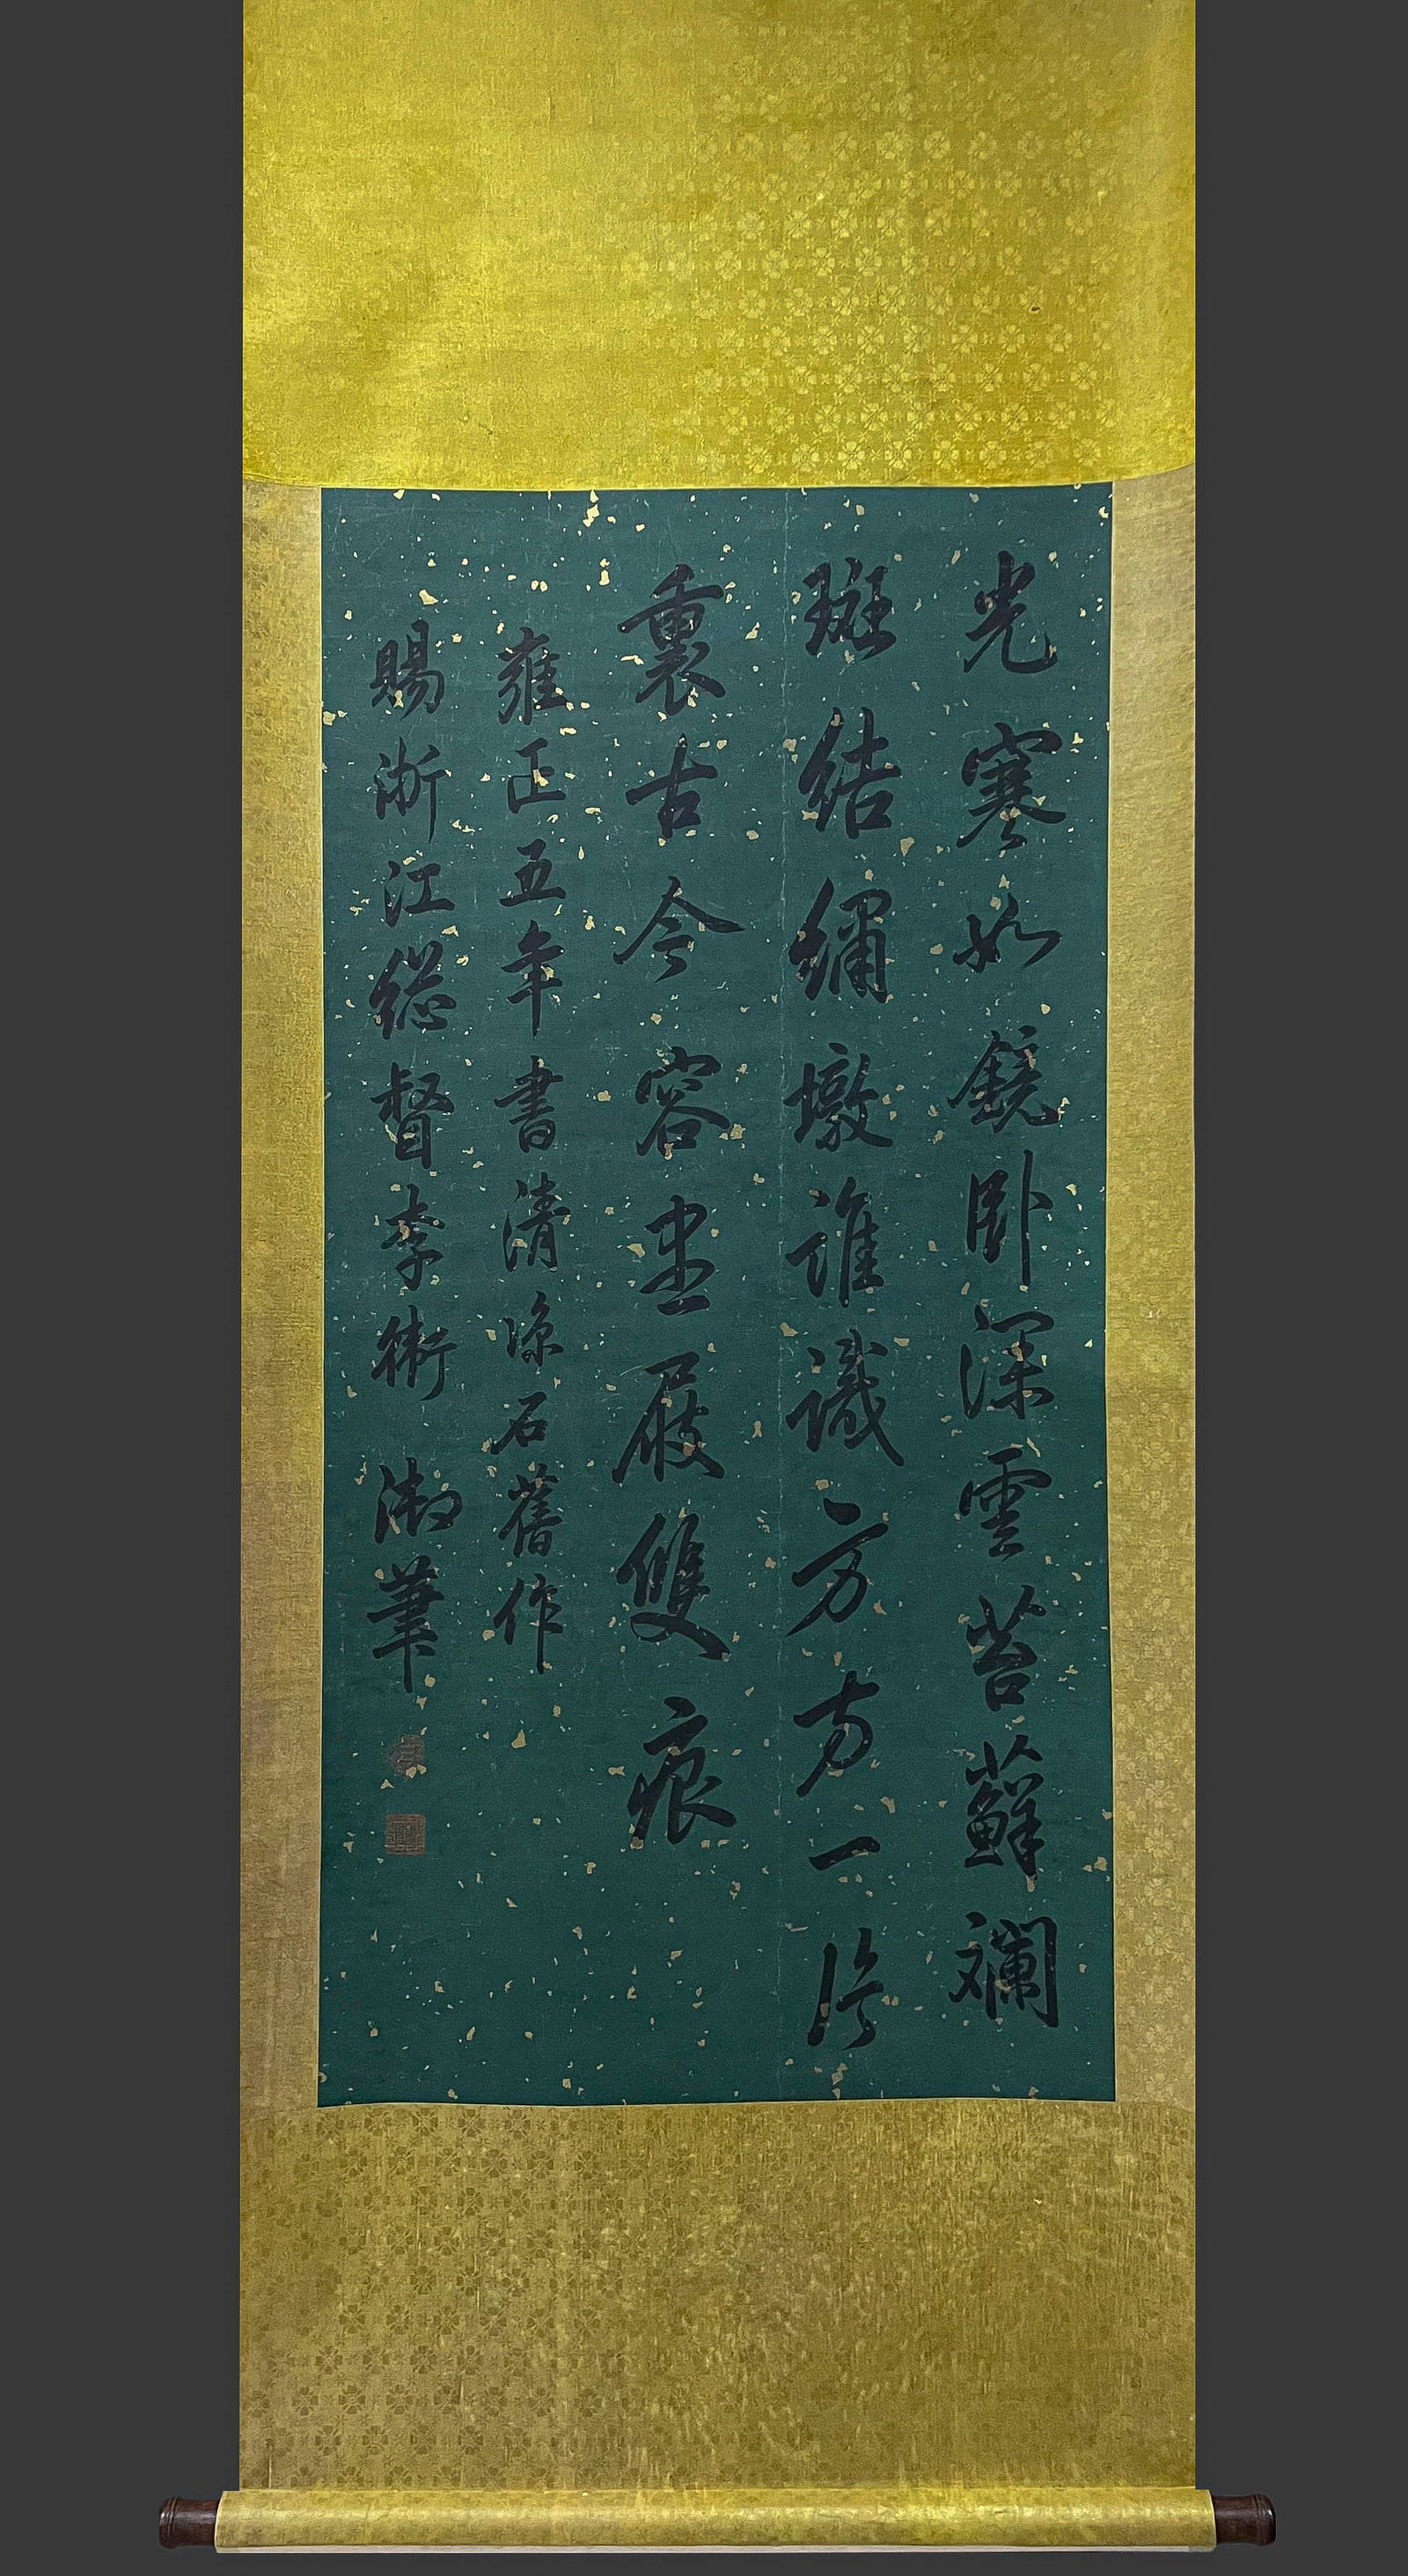 光寒如鏡卧深雲苔蘚斕
斑結繡墩誰識方方一片
裏古今容盡屐雙痕
雍正五年書清涼石舊作
賜浙江總督李衛 御筆